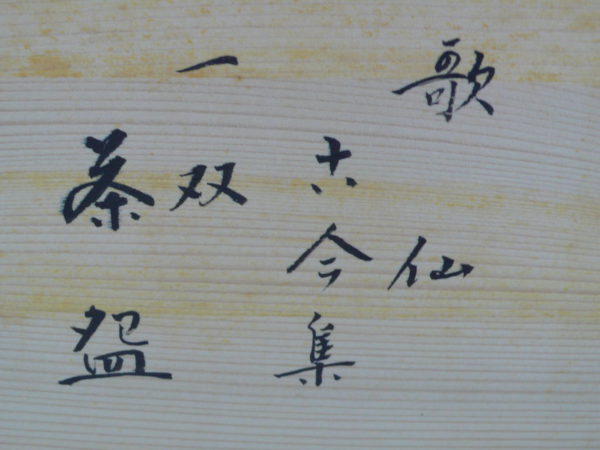 歌仙
古今集
一双
茶盌